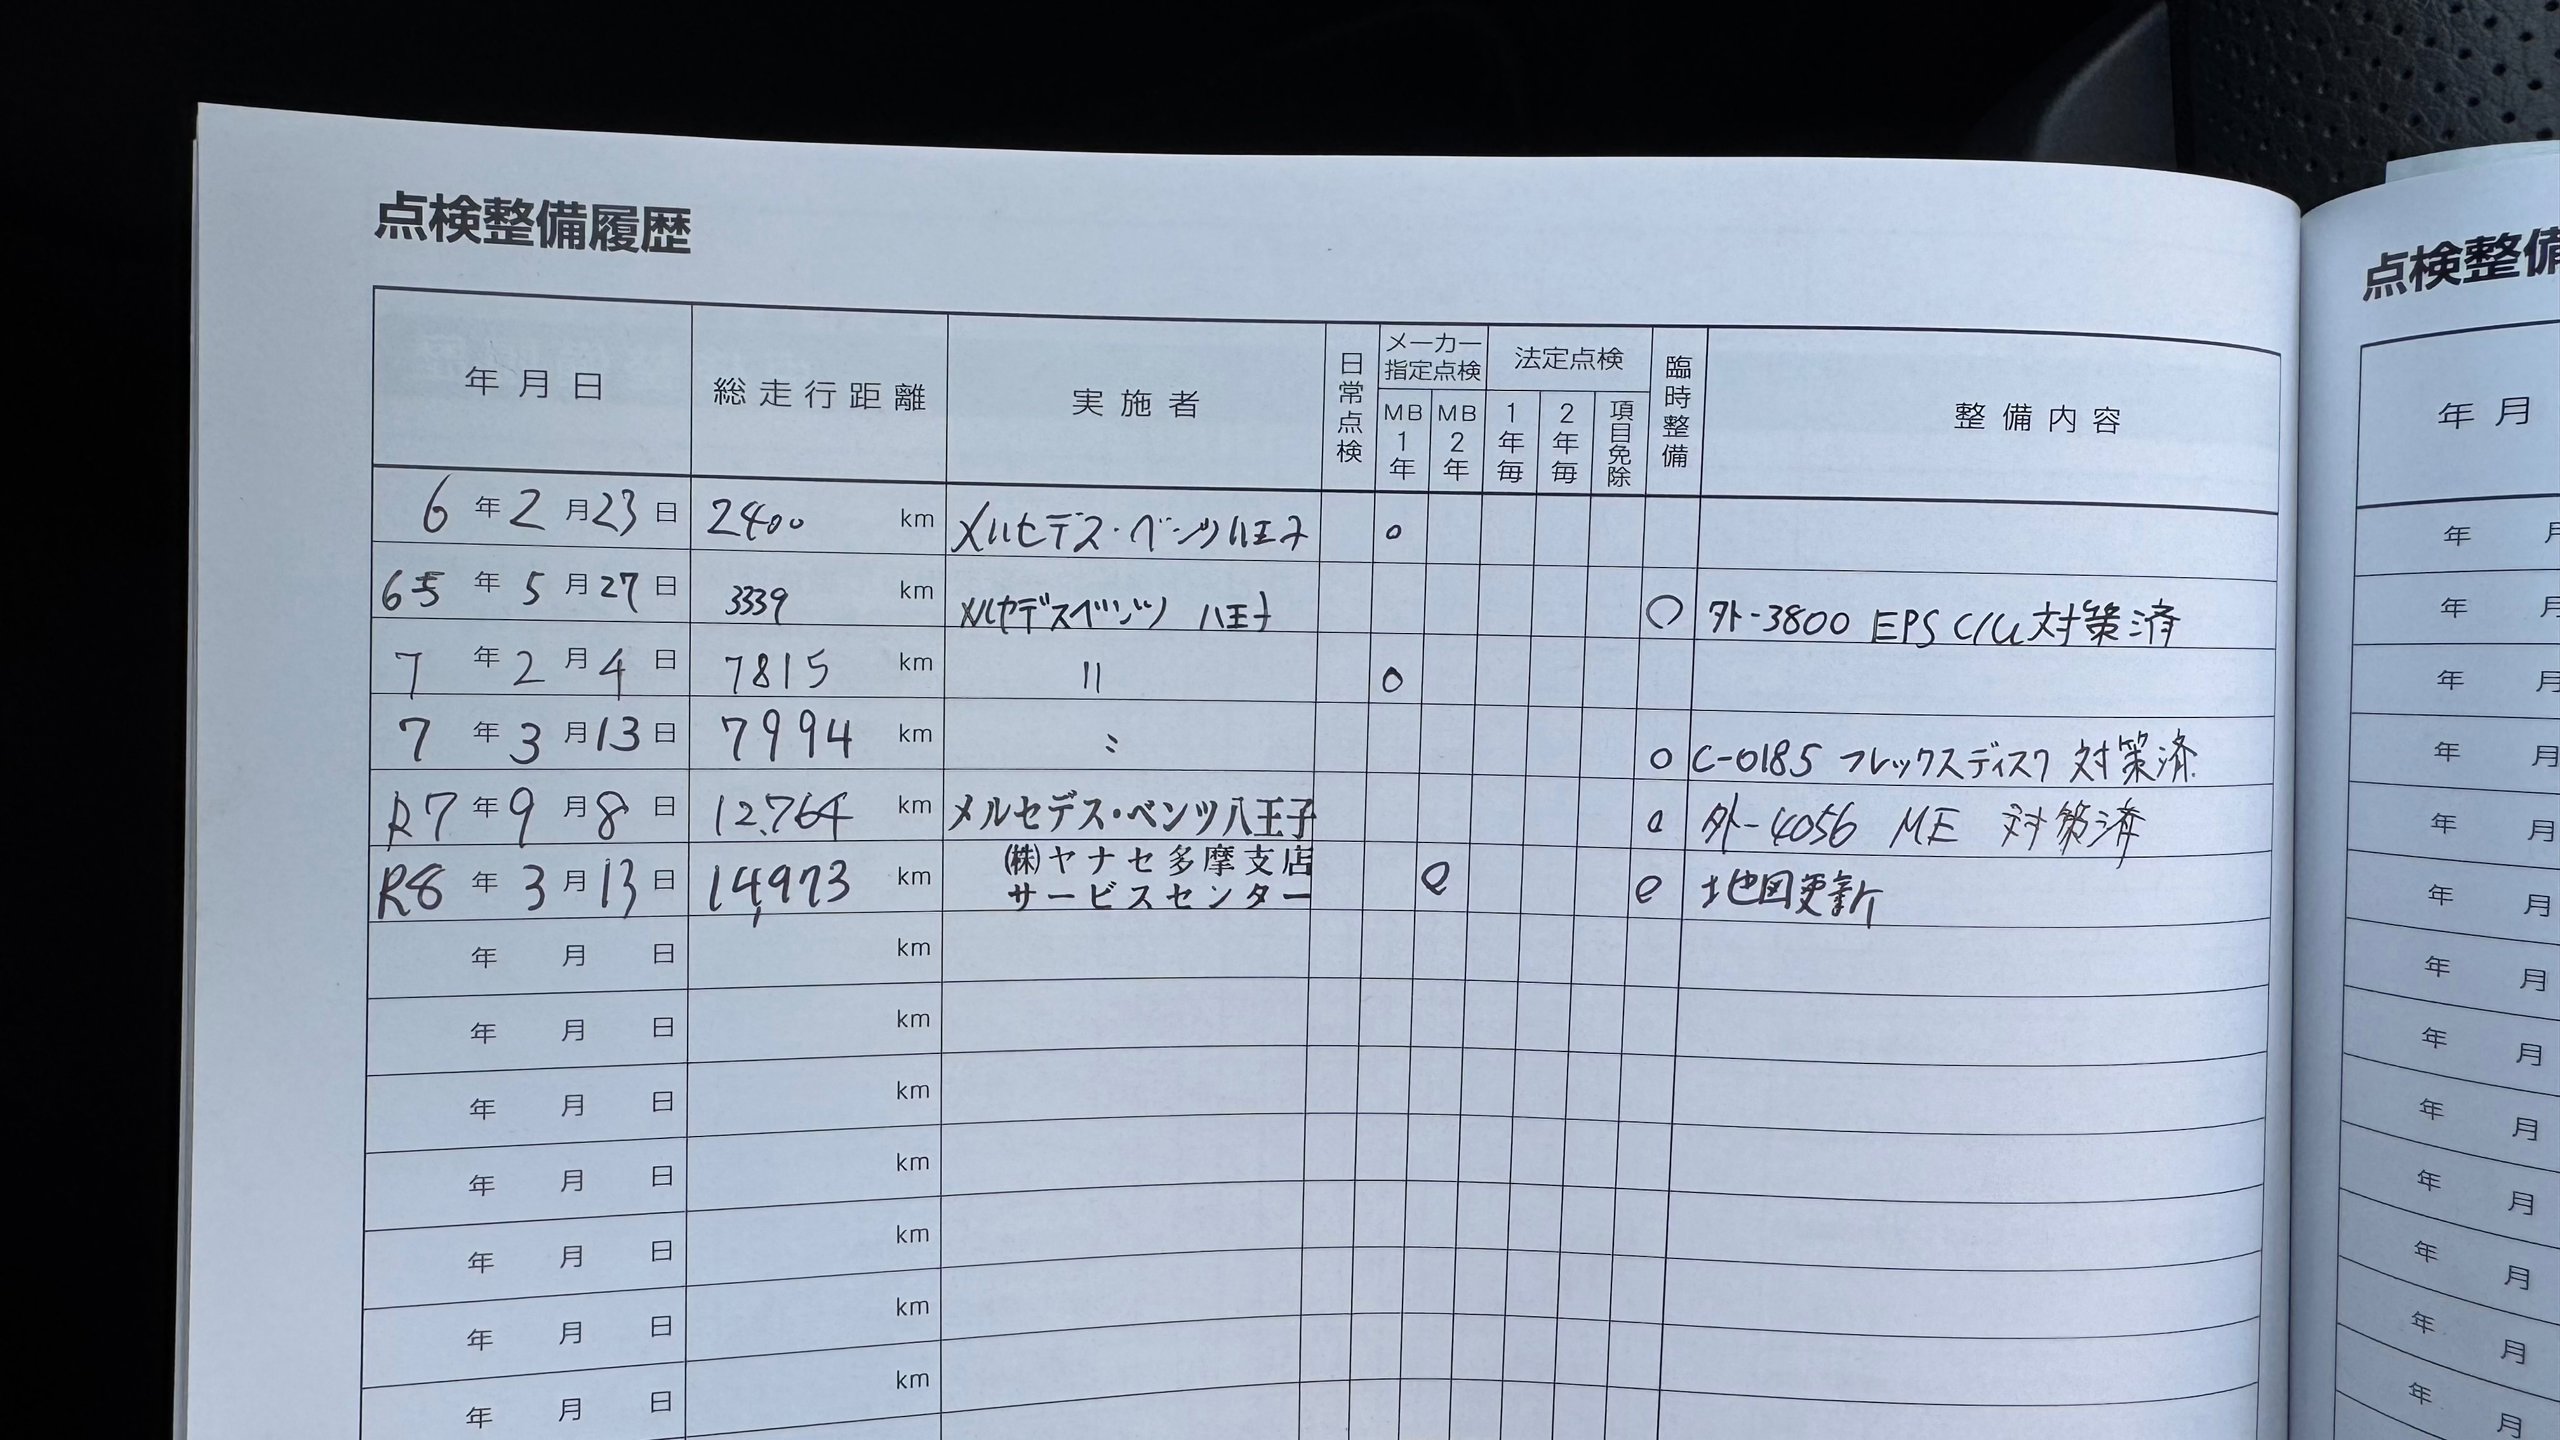 点検整備履歴
年月日 総走行距離 実施者 日常点検 メーカー指定点検 MB1年 MB2年 法定点検 1年毎 2年毎 項目免除 臨時整備 整備内容
6年2月23日 2400 km メルセデス・ベンツ八王子 ○
6 5年5月27日 3339 km メルセデスベンツ 八王子 ○ 外-3800 EPS C/U 対策済
7年2月4日 7815 km 〃 ○
7年3月13日 7994 km 〃 ○ C-0185 フレックスディスク 対策済
R7年9月8日 12,764 km メルセデス・ベンツ八王子 ○ 外-4056 ME 対策済
R8年3月13日 14,973 km ㈱ヤナセ多摩支店 サービスセンター ○ ○ 地図更新
年 月 日 km
年 月 日 km
年 月 日 km
年 月 日 km
年 月 日 km
年 月 日 km
年 月 日 km
点検整備
年 月
年 月
年 月
年 月
年 月
年 月
年 月
年 月
年 月
年 月
年 月
年 月
年 月
年 月